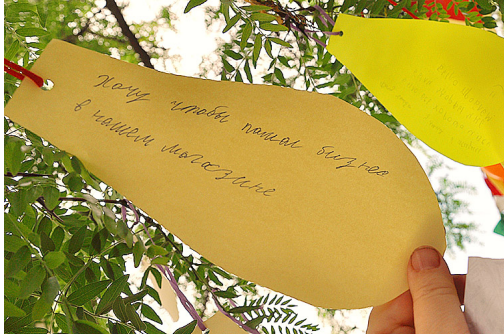 Хочу чтобы пошел бизнес
в нашем магазине